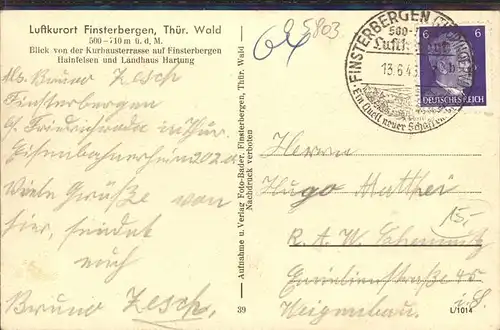 Luftkurort Finsterbergen, Thür. Wald
500–710 m ü. d. M.
Blick von der Kurhausterrasse auf Finsterbergen
Hainfelsen und Landhaus Hartung
Abs. Bruno Zesch
Finsterbergen
b/ Friedrichroda in Thür.
Eisenbahnerheim 202a
Viele Grüße von
hier, sendet
euch
Bruno Zesch.
Aufnahme u. Verlag Foto-Bader, Finsterbergen, Thür. Wald
Nachdruck verboten
39
5803
FINSTERBERGEN
500-
Luftkurort
13.6.4
Ein Quell neuer Schaffen
6 6
DEUTSCHES REICH
Herrn
Hugo Matthei
15,-
R. A. W. Chemnitz
45
L/1014